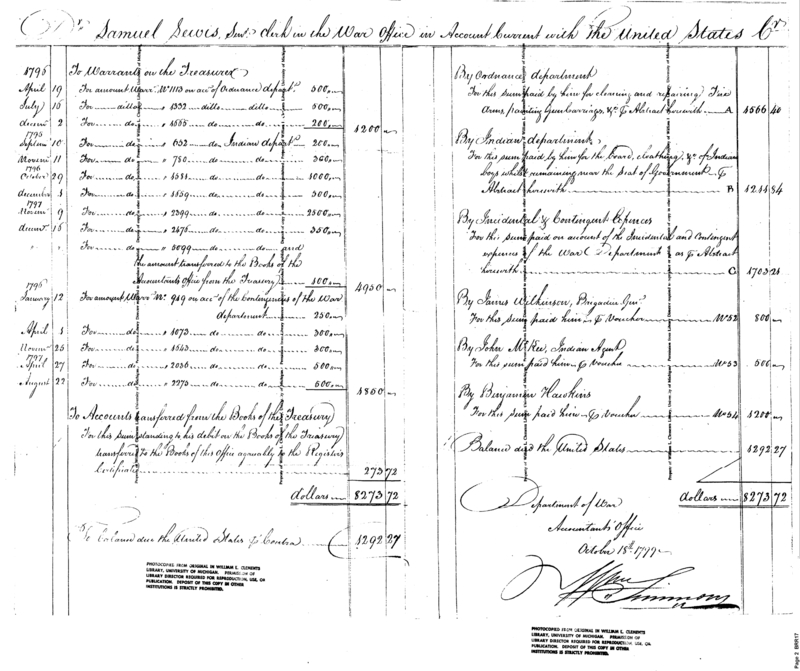 Dr. Samuel Lewis, Senr. Clerk in the War Office in Account Current with the United States Cr.
1796 To Warrants on the Treasurer
April 19 For amount Warrt. No. 1113 on acct. of Ordnance departt. 500
July 16 For ditto 1332 ditto ditto 500
decem 2 For do 1555 do do 200
1200
1795
Septem 10 For do 632 do Indian departt. 200
Novem 11 For do 750 do do 300
1796
October 29 For do do do 1000
december 1 For do do do 300
1797
Novem 9 For do 2399 do do 2500
decem 16 For do 2475 do do 350
" " For do 3099 do do and
the amount transferred to the Books of the
Accountants Office from the Treasury 100
4950
1796
January 12 For amount Warrt. No. 949 on acct. of the Contingencies of the War
department 250
April 1 For do 1073 do do 300
Novem 25 For do do do 300
1797
April 27 For do 2036 do do 500
August 22 For do 2273 do do 500
1850
To Accounts transferred from the Books of the Treasury
For this Sum standing to his debit on the Books of the Treasury
transferred to the Books of this Office agreeably to the Registers
Certificate 273 72
dollars 8273 72
To balance due the United States Contra 1292 27
By Ordnance department
For this sum paid by him for cleaning and repairing Fire
Arms, painting Gun carriages, &c. Abstract herewith A
By Indian department
For this sum paid by him for the board, cloathing, &c. of Indian
boys whilst remaining near the Seat of Government
Abstract herewith B
By Incidental & Contingent Expences
For this sum paid on account of the Incidental and Contingent
expences of the War Department as Abstract
herewith C 1703 21
By James Wilkinson, Brigadier Genl.
For this sum paid him Voucher No. 52 800
By John McKee, Indian Agent
For this sum paid him Voucher No. 53 500
By Benjamin Hawkins
For this sum paid him Voucher No. 54 1200
Balance due the United States 1292 27
dollars 8273 72
Department of War
Accountants Office
October 18th
Wm Simmons
PHOTOCOPIED FROM ORIGINAL IN WILLIAM L. CLEMENTS
LIBRARY, UNIVERSITY OF MICHIGAN. PERMISSION OF
LIBRARY DIRECTOR REQUIRED FOR REPRODUCTION, USE, OR
PUBLICATION. DEPOSIT OF THIS COPY IN OTHER
INSTITUTIONS IS STRICTLY PROHIBITED.
PHOTOCOPIED FROM ORIGINAL IN WILLIAM L. CLEMENTS
LIBRARY, UNIVERSITY OF MICHIGAN. PERMISSION OF
LIBRARY DIRECTOR REQUIRED FOR REPRODUCTION, USE, OR
PUBLICATION. DEPOSIT OF THIS COPY IN OTHER
INSTITUTIONS IS STRICTLY PROHIBITED.
Page 2 BRR17